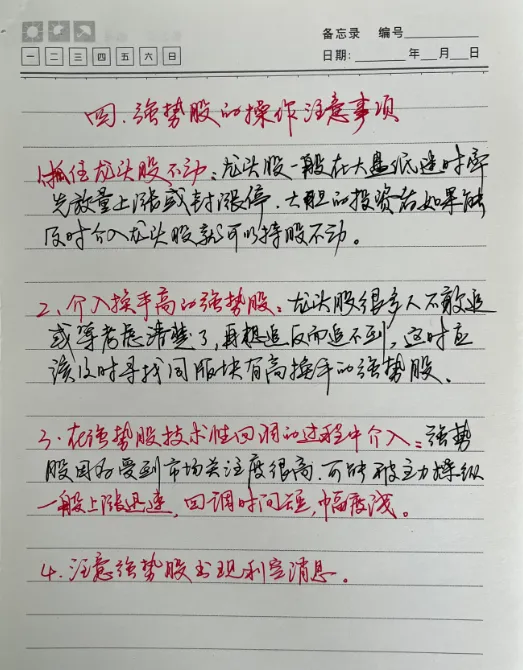 备忘录 编号
一 二 三 四 五 六 日
日期: 年 月 日
四.强势股的操作注意事项
1.抓住龙头股不动:龙头股一般在大盘低迷时率
先放量上涨或封涨停.大胆的投资者如果能
及时介入龙头股就可以持股不动。
2.介入换手高的强势股:龙头股很多人不敢追
或等考虑清楚了,再想追反而追不到,这时应
该及时寻找同版块有高换手的强势股、
3.在强势股技术性回调的过程中介入:强势
股因为受到市场关注度很高.可能被主力操纵
一般上涨迅速,回调时间短,幅度浅。
4.注意强势股出现利空消息。